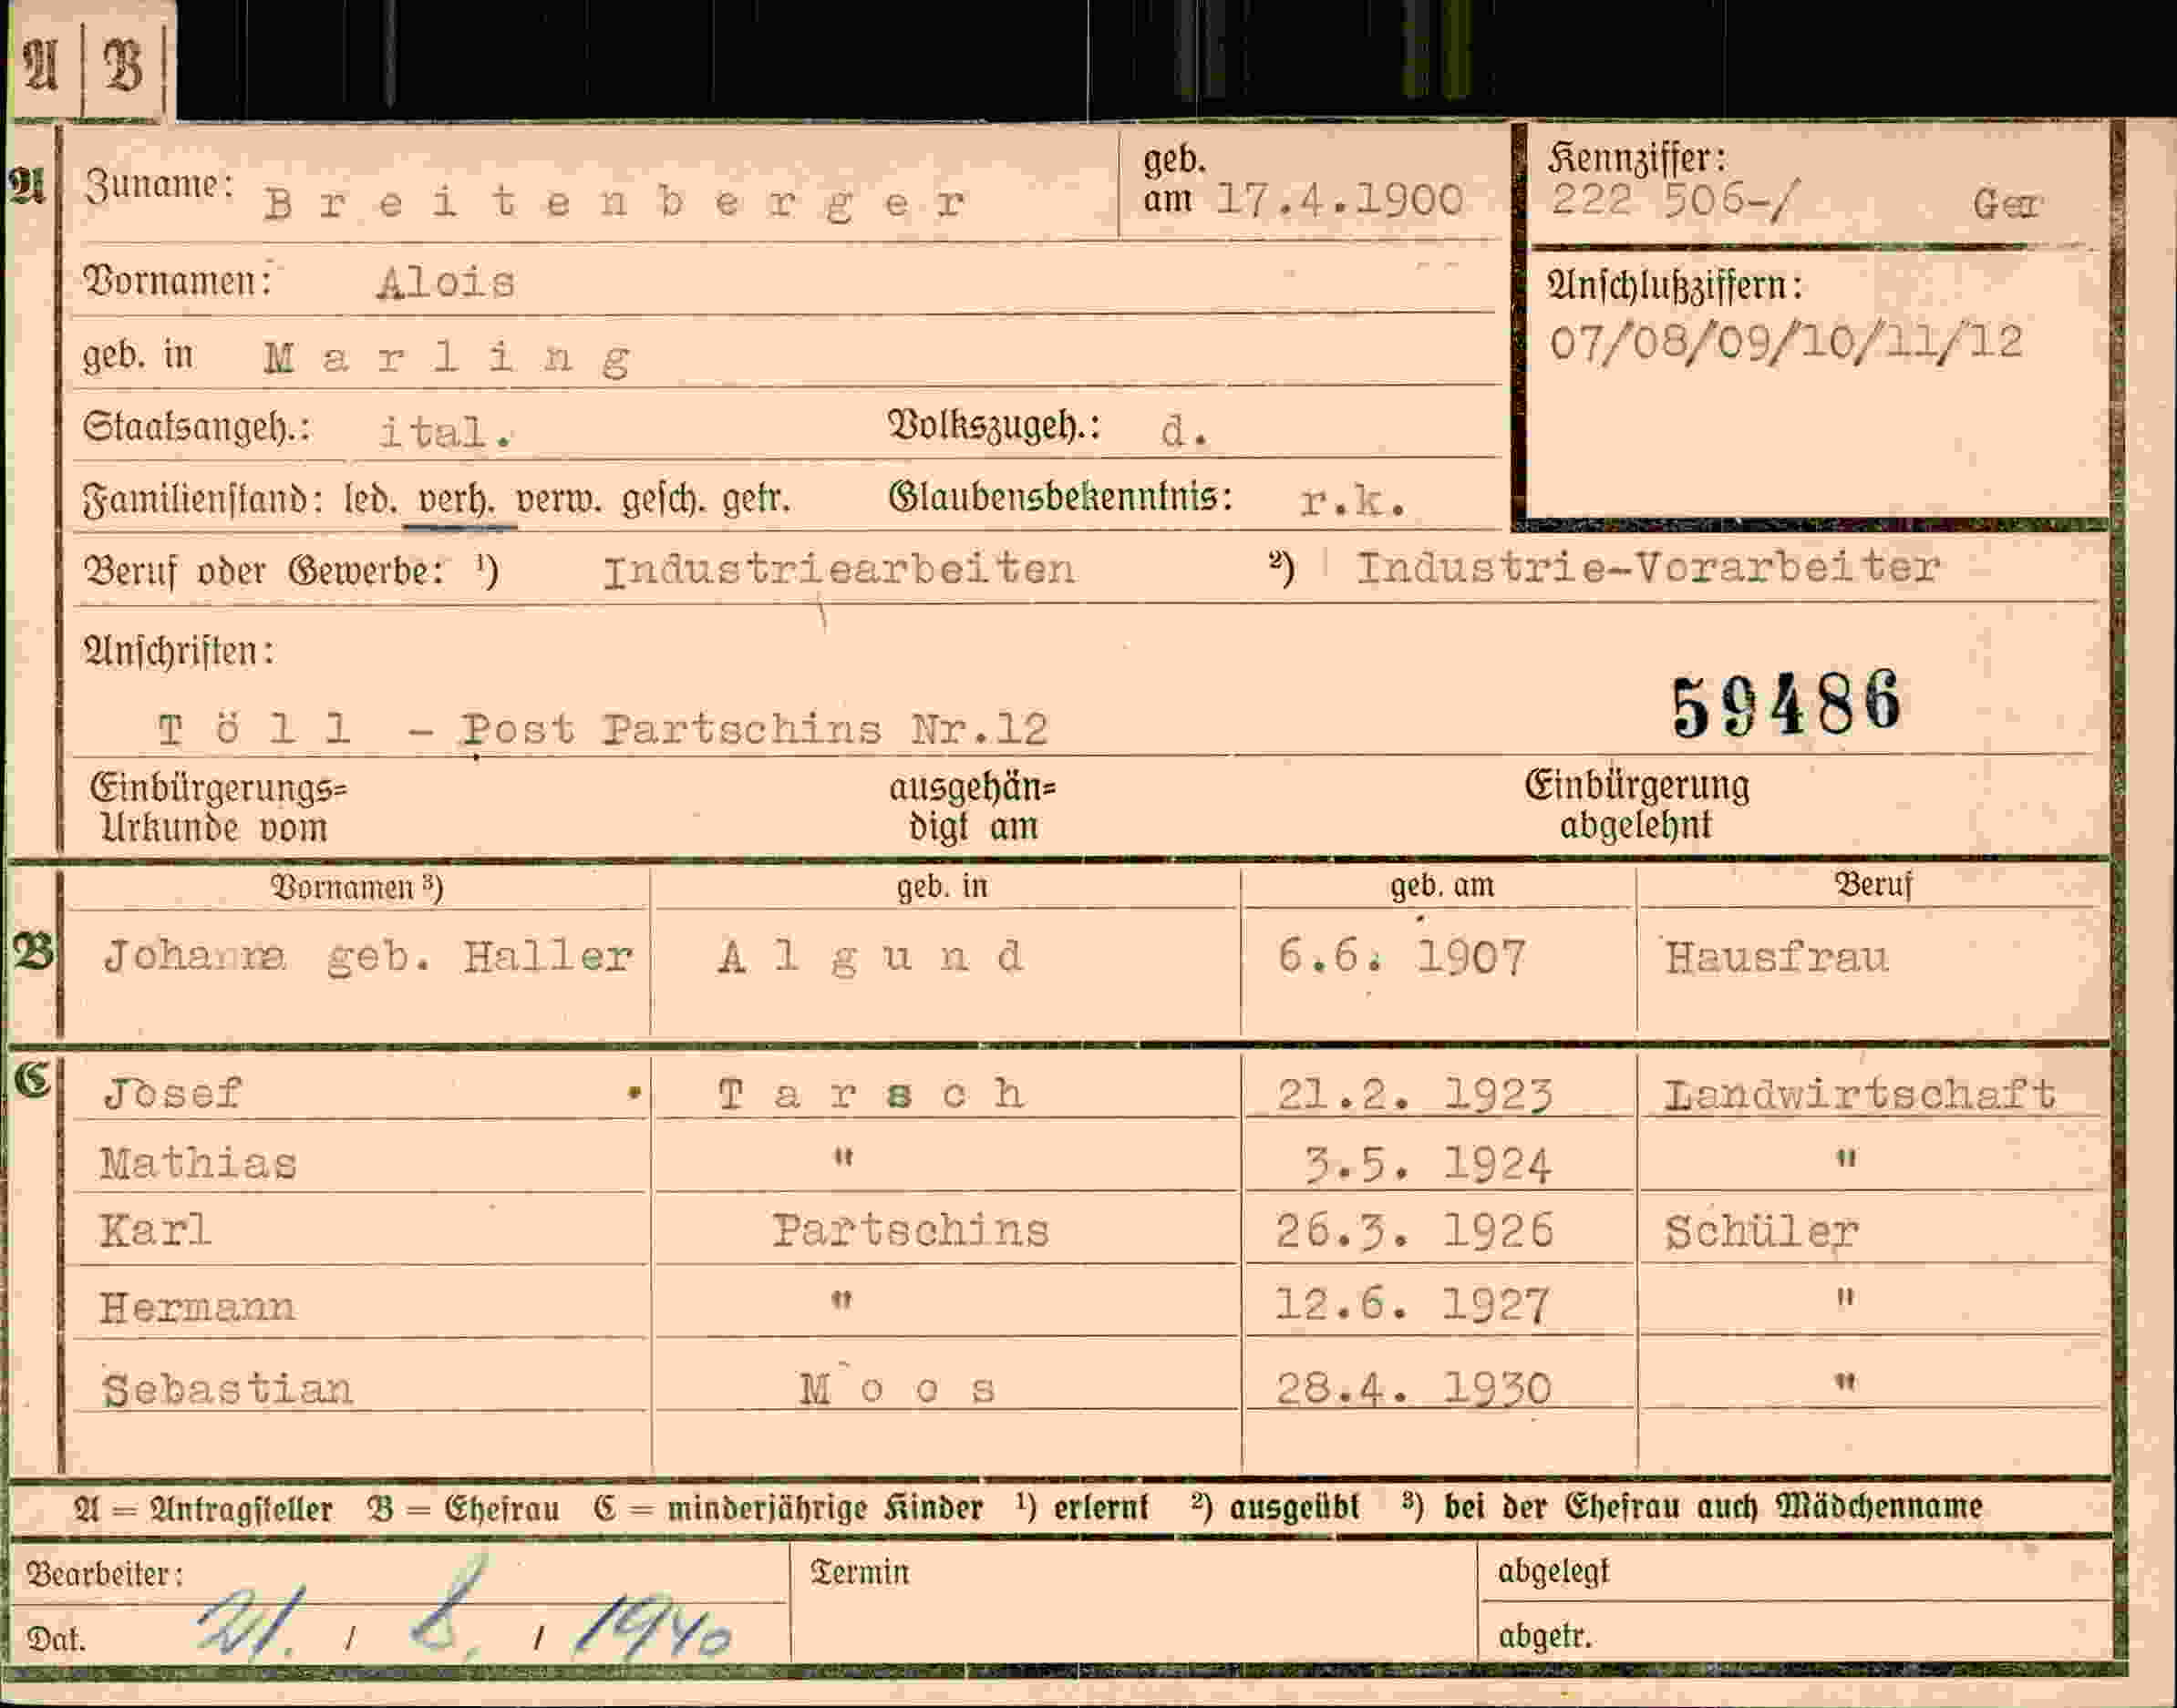 A | B |
A Zuname: Breitenberger geb. am 17.4.1900 Kennziffer: 222 506-/ Ger
Vornamen: Alois Anschlußziffern:
geb. in Marling 07/08/09/10/11/12
Staatsangeh.: ital. Volkszugeh.: d.
Familienstand: led. verh. verw. gesch. getr. Glaubensbekenntnis: r.k.
Beruf oder Gewerbe: ¹) Industriearbeiten ²) Industrie-Vorarbeiter
Anschriften:
59486
Töll - Post Partschins Nr.12
Einbürgerungs= ausgehän= Einbürgerung
Urkunde vom digt am abgelehnt
Vornamen ³) geb. in geb. am Beruf
B Johanna geb. Haller Algund 6.6. 1907 Hausfrau
C Josef Tarsch 21.2. 1923 Landwirtschaft
Mathias " 3.5. 1924 "
Karl Partschins 26.3. 1926 Schüler
Hermann " 12.6. 1927 "
Sebastian Moos 28.4. 1930 "
A = Antragsteller B = Ehefrau C = minderjährige Kinder ¹) erlernt ²) ausgeübt ³) bei der Ehefrau auch Mädchenname
Bearbeiter: Termin abgelegt
Dat. 21. / 8. / 1940 abgetr.